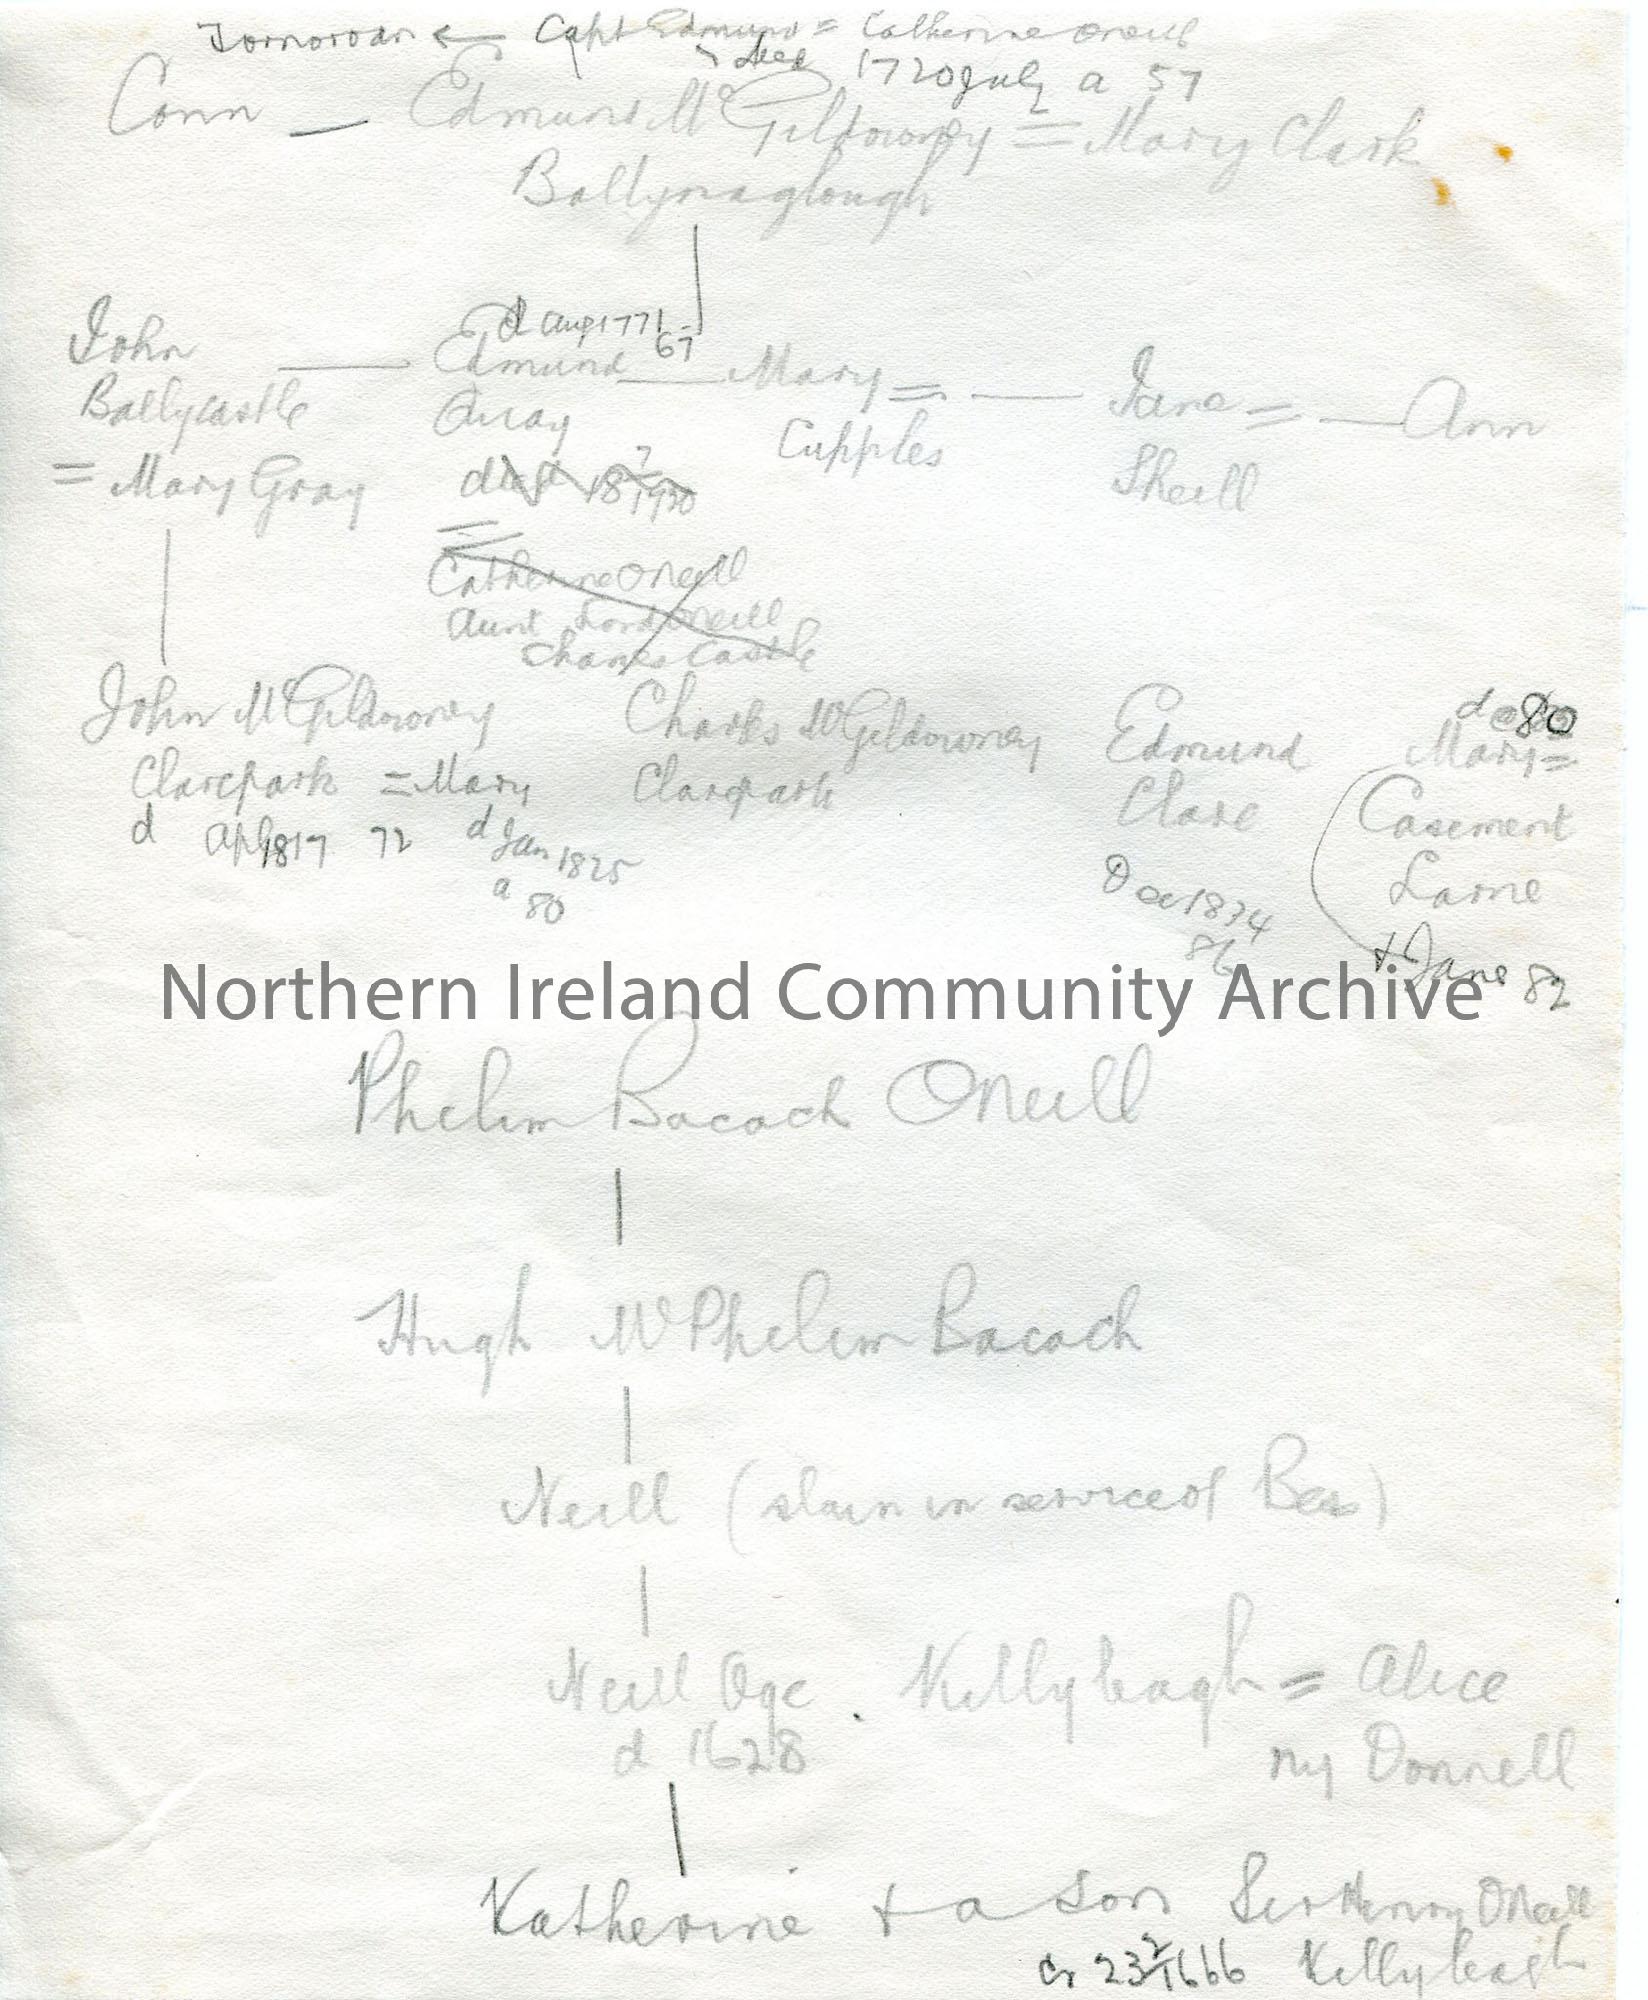 Tornoroan ← Capt Edmund = Catherine Oneill
died 1720 July a 57
Conn — Edmund McGildowney = Mary Clark
Ballynaglough
d Aug 1771
67
John — Edmund — Mary = — Jane = — Ann
Ballycastle Quay Cupples Sheill
= Mary Gray
=
Catherine Oneill
Aunt Lord Oneill
Shanes Castle
John McGildowney Charles McGildowney Edmund Mary =
Clarepark = Mary Clarepark Clare Casement
d Apl 1817 72 d Jan 1825 Larne
a 80
d 80
Dec 1834
86
+ Jane 82
Northern Ireland Community Archive
Phelim Bacach ONeill
Hugh McPhelim Bacach
Neill (slain in service of Bess)
Neill Oge Killyleagh = Alice
d 1628 ny Donnell
Katherine + a son Sir Henry ONeill
Cr 23 2/1666 Killyleagh